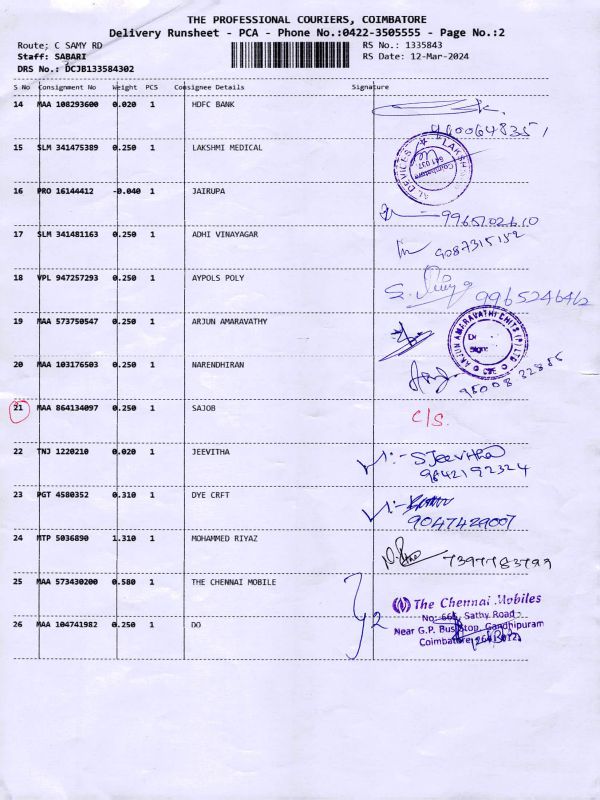 THE PROFESSIONAL COURIERS, COIMBATORE
Delivery Runsheet - PCA - Phone No.:0422-3505555 - Page No.:2
Route; C SAMY RD RS No.: 1335843
Staff: SABARI RS Date: 12-Mar-2024
DRS No.: DCJB133584302
S No Consignment No Weight PCS Consignee Details Signature
14 MAA 108293600 0.020 1 HDFC BANK
15 SLM 341475389 0.250 1 LAKSHMI MEDICAL
AL DEVICES LAKSH
641 037
Coimbatore
16 PRO 16144412 -0.040 1 JAIRUPA 9965102610
17 SLM 341481163 0.250 1 ADHI VINAYAGAR 9087315152
18 VPL 947257293 0.250 1 AYPOLS POLY
19 MAA 573750547 0.250 1 ARJUN AMARAVATHY
ARJUN AMARAVATHI CHITS (P) LTD
CBE
20 MAA 103176503 0.250 1 NARENDHIRAN
21 MAA 864134097 0.250 1 SAJOB C/S.
22 TNJ 1220210 0.020 1 JEEVITHA S Jeevitha
9842192324
23 PGT 4580352 0.310 1 DYE CRFT
9047429007
24 MTP 5036890 1.310 1 MOHAMMED RIYAZ 7397783799
25 MAA 573430200 0.580 1 THE CHENNAI MOBILE
The Chennai Mobiles
Sathy Road
26 MAA 104741982 0.250 1 DO
Near G.P. Bus Stop, Gandhipuram